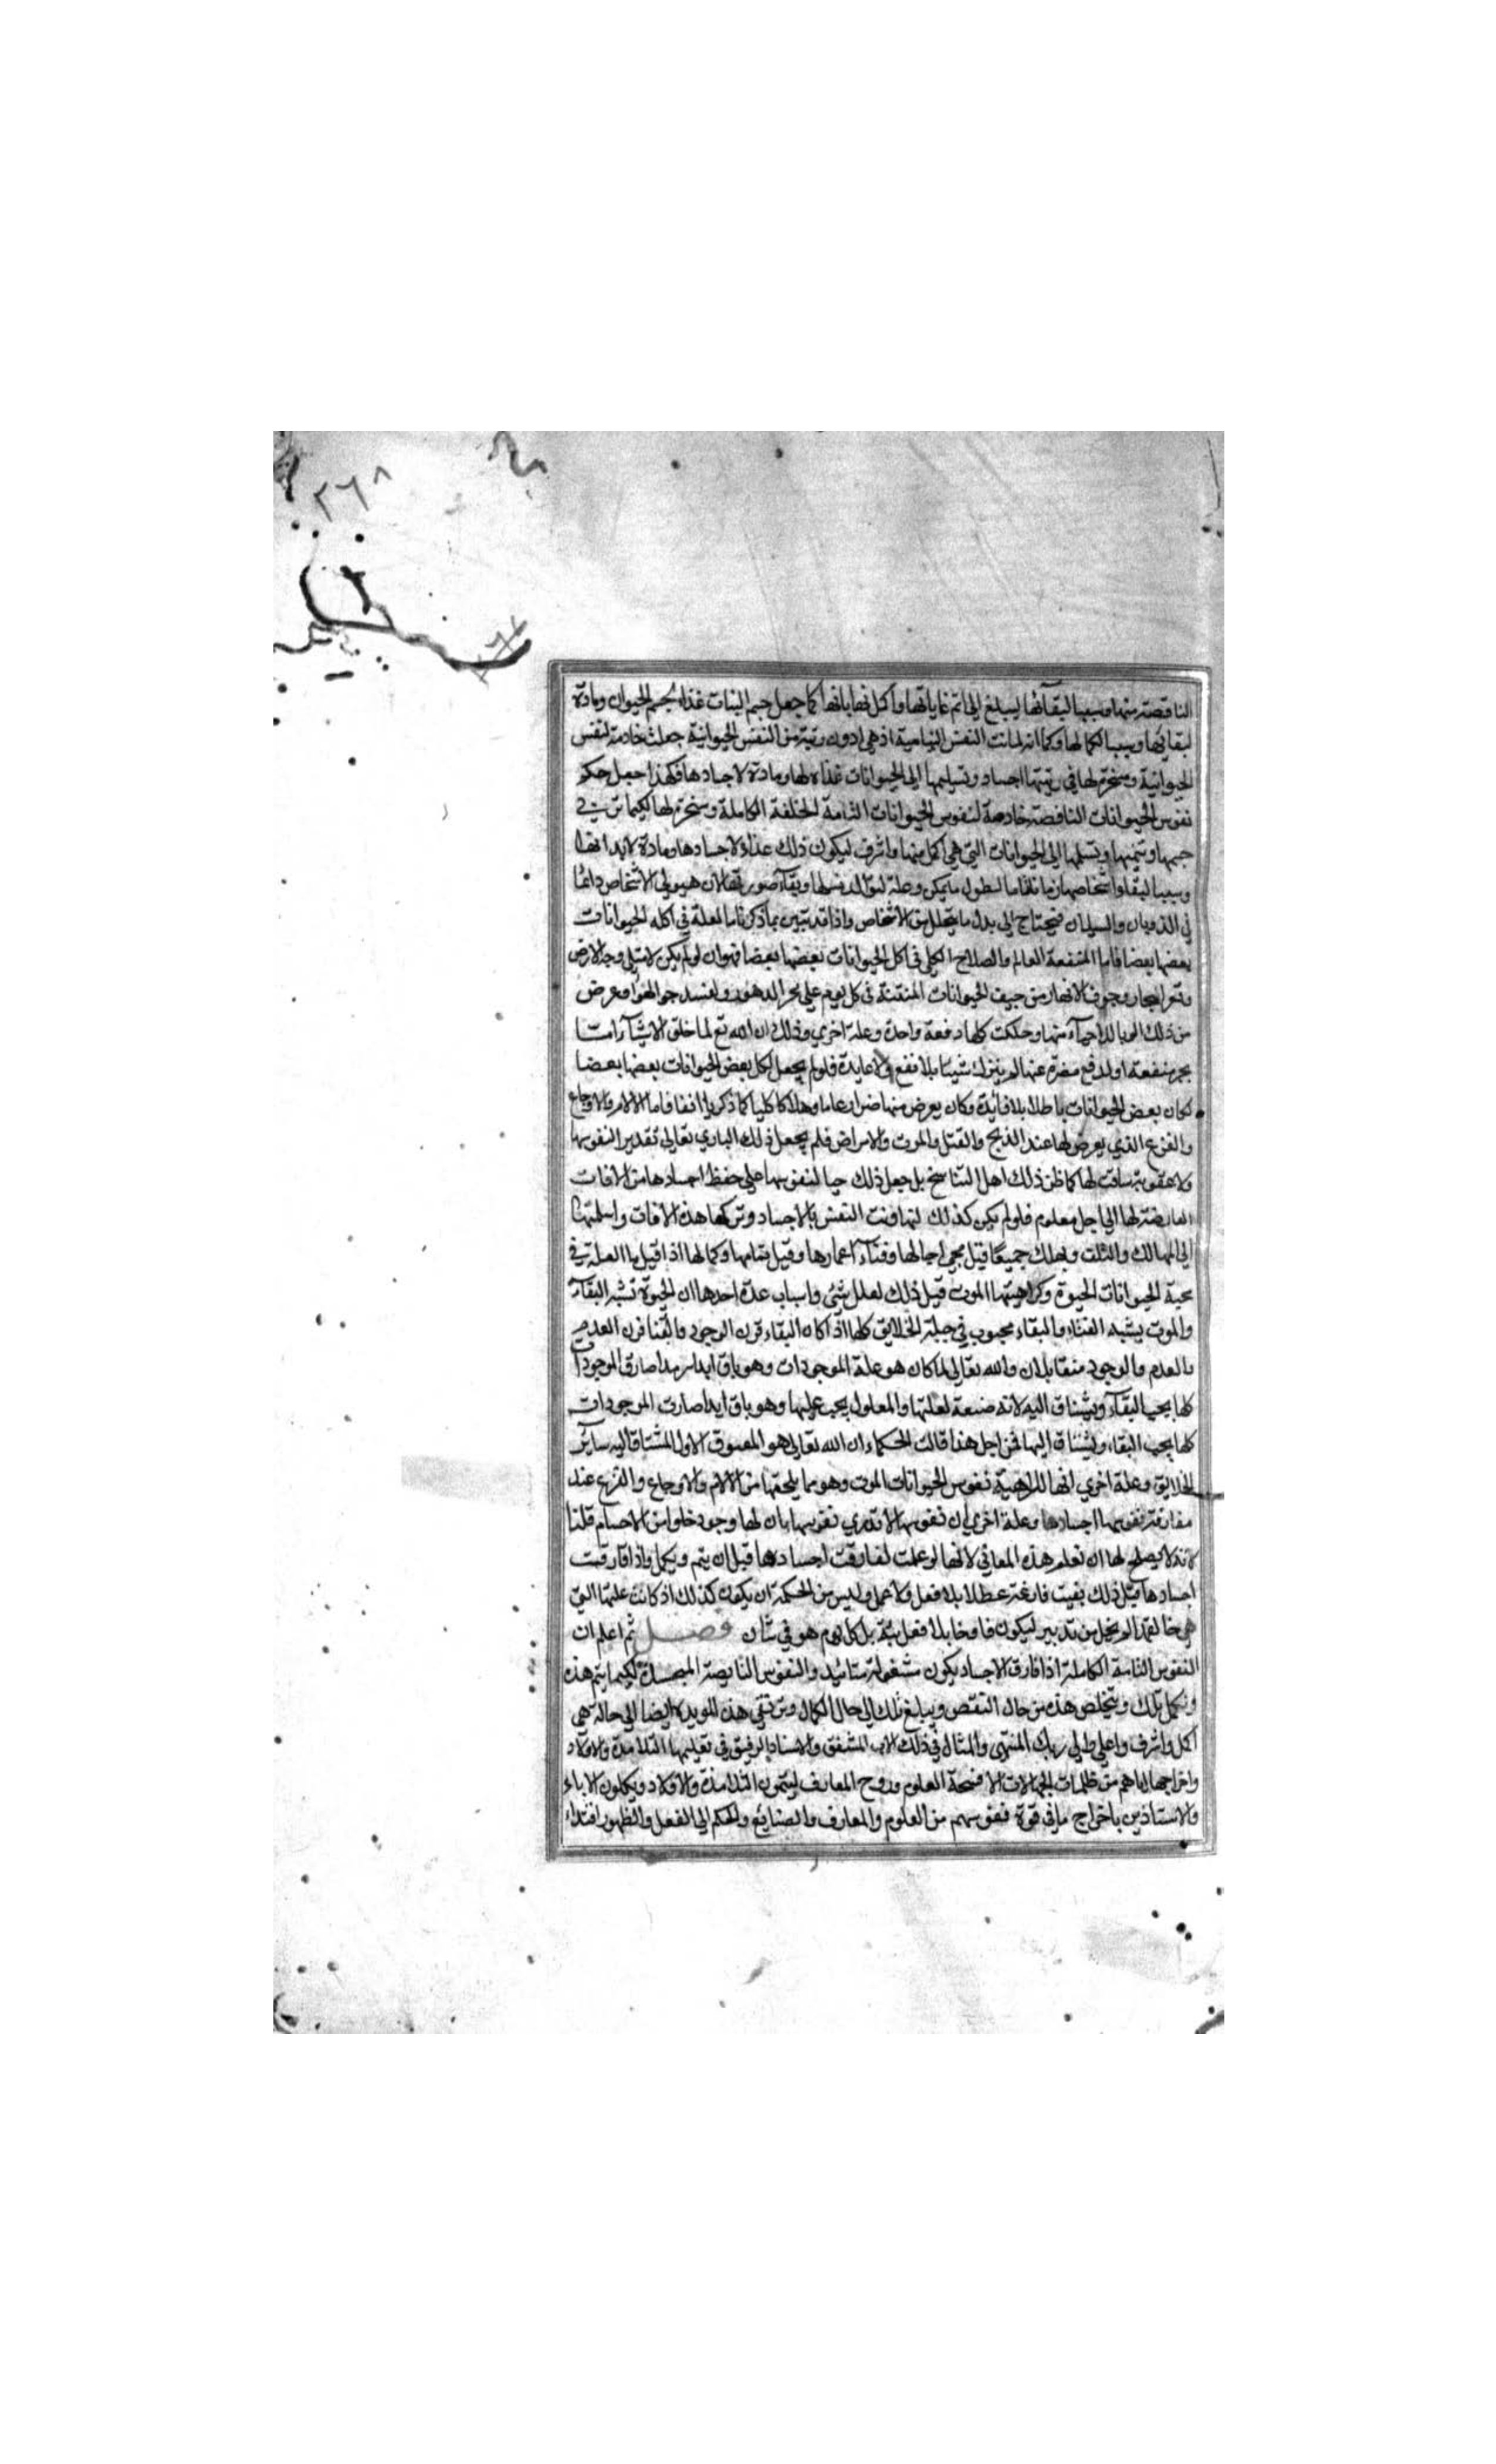 ٢٦٨
الناقصة منها وسببا لبقآئها ليبلغ الى اتم غاياتها واكمل نهاياتها كما جعل جسم النبات غذاء لجسم الحيوان ومادة
لبقائها وسببا لكمالها وكما انه لما كانت النفس النباتية اذ هي ادون رتبة من النفس الحيوانية جعلت خادمة لنفس
الحيوانية ومسخرة لها في رتبتها اجساد وتسليمها الى الحيوانات غذاء لها ومادة لاجسادها فكهذا جعل حكم
نفوس الحيوانات الناقصة خادمة لنفوس الحيوانات التامة الخلقة الكاملة ومسخرة لها لكيما تربي
جسمها وتتمها وتسلمها الى الحيوانات التي هي اكمل منها واشرف ليكون ذلك غذاء لاجسادها ومادة لابدانها
وسببا لبقاء اشخاصها زمانا ما لطول ما يمكن وعلة لتوالد نسلها وبقآء صورتها لان هيولى الاشخاص دائما
في الذوبان والسيلان فيحتاج الى بدل ما يتحلل من الاشخاص واذا قد تبين بما ذكرنا ما العلة في اكله الحيوانات
بعضها بعضا فاما المنفعة العالم والصلاح الكلي في اكل الحيوانات بعضها بعضا فهو ان لو لم يكن لامتلى وجه الارض
وقعر البحار وجوف الانهار من جيف الحيوانات المنتنة في كل يوم على ممر الدهور ولفسد جو الهوا وعرض
من ذلك الوبا للاحيآء منها وهلكت كلها دفعة واحدة وعلة اخري وذلك ان الله تع لما خلق الاشيآء امتا
بجر منفعة او لدفع مضرة عنها لم يترك شيئا بلا نفع ولا عايدة فلو لم يجعل اكل بعض الحيوانات بعضها بعضا
لكان بعض الحيوانات باطلا بلا فايدة وكان يعرض منها ضرر عاما وهلاكا كليا كما ذكرنا انفا فاما الالام والاوجاع
والفزع الذي يعرض لها عند الذبح والقتل والموت والامراض فلم يجعل ذلك الباري تعالى تقدير النفوسها
ولا عقوبة ساقت لها كما ظن ذلك اهل التناسخ بل جعل ذلك حبا لنفوسها على حفظ اجسادها من الافات
العارضة لها الى اجل معلوم فلو لم يكن كذلك لتهاونت النفس بالاجساد وتركها هذه الافات واسلمتها
الى المهالك والتلف وهلك جميعا قبل مجي اجالها وفنآء اعمارها وقبل تمامها وكمالها اذا قيل ما العلة في
محبة الحيوانات الحيوة وكراهيتها الموت قيل ذلك لعلل شتى واسباب عدة احدها ان الحيوة تشبه البقآء
والموت يشبه الفناء والبقاء محبوب في جبلة الخلايق كلها اذ كان البقاء قرن الوجود والفنا قرن العدم
والعدم والوجود متقابلان والله تعالى لما كان هو علة الموجودات وهو باق ابدا سرمدا صارت الموجودات
كلها يحب البقآء ويشتاق اليه لانه صنعة لعلتها والمعلول يحب عليها وهو باق ابدا صارت الموجودات
كلها يحب البقاء ويشتاق اليها فمن اجل هذا قالت الحكماء ان الله تعالى هو المعشوق الاول المشتاق اليه سائر
الخلايق وعلة اخري انها لكراهية نفوس الحيوانات الموت وهو مما يلحقها من الالام والاوجاع والفزع عند
مفارقة نفوسها اجسادها وعلة اخري ان نفوسها لا تدري نفوسها بان لها وجود خلوا من الاجسام قلنا
لانه لا يصلح لها ان تعلم هذه المعاني لانها لو علمت لفارقت اجسادها قبل ان يتم ويكمل واذا فارقت
اجسادها قبل ذلك بقيت فارغة عطلا بلا فعل ولا عمل وليس من الحكمة ان يكون كذلك اذ كانت علتها التي
هي خالقها لم يخل من تدبير ليكون فارغا بلا فعل بتة بل كل يوم هو في شان فصل ثم اعلم ان
النفوس التامة الكاملة اذا فارق الاجساد يكون مشغولة بتائيد والنفوس الناقصة المجسدة لكيما يتم هذه
وتكمل تلك ويتخلص هذه من حال النقص ويبلغ تلك الى حال الكمال وترتقي هذه المويدة ايضا الى حالة هي
اكمل واشرف واعلى والى ربك المنتهى والمثال في ذلك الاب المشفق والاستاد الرفيق في تعليمها التلامذة والاولاد
واخراجها اياهم من ظلمات الجهالات الا فسحة العلوم وروح المعارف ليتمون التلامذة والاولاد ويكملون الاباء
والاستاذين باخراج ما في قوة نفوسهم من العلوم والمعارف والصنايع والحكم الى الفعل والظهور اقتداء